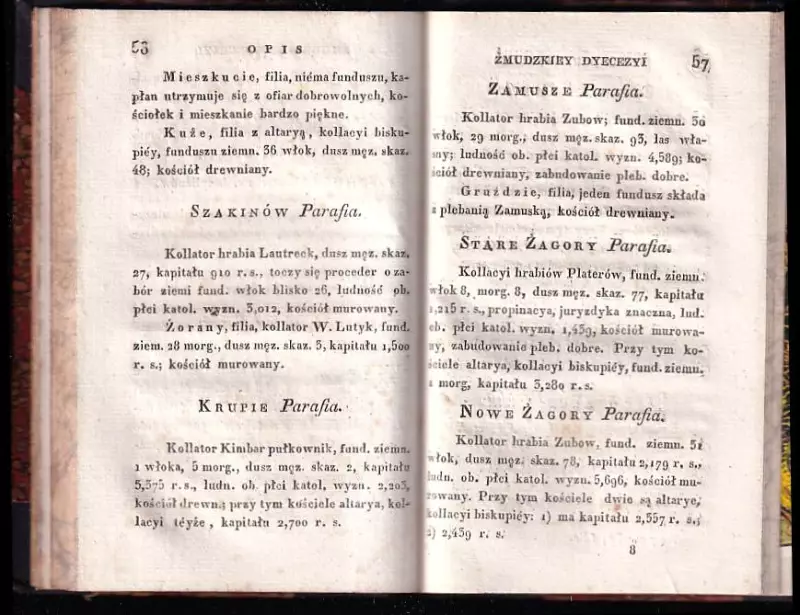 56
OPIS
Mieszkucie, filia, niéma funduszu, ka-
płan utrzymuje się z ofiar dobrowolnych, ko-
ściołek i mieszkanie bardzo piękne.
Kuże, filia z altaryą, kollacyi bisku-
piéy, funduszu ziemn. 36 włok, dusz męz. skaz.
48; kościół drewniany.
SZAKINÓW Parafia.
Kollator hrabia Lautreck, dusz męz. skaz.
27, kapitału 910 r. s., toczy się proceder o za-
bór ziemi fund. włok blisko 26, ludność ob.
płci katol. wyzn. 3,012, kościół murowany.
Żorany, filia, kollator W. Lutyk, fund.
ziem. 28 morg., dusz męz. skaz. 5, kapitału 1,500
r. s.; kościół murowany.
KRUPIE Parafia.
Kollator Kimbar pułkownik, fund. ziemn.
1 włoka, 5 morg., dusz męz. skaz. 2, kapitału
5,575 r. s., ludn. ob. płci katol. wyzn. 2,203,
kościół drewn.; przy tym kościele altarya, kol-
lacyi téyże, kapitału 2,700 r. s.
ŻMUDZKIEY DYECEZYI
57
ZAMUSZE Parafia.
Kollator hrabia Zubow; fund. ziemn. 30
włok, 29 morg.; dusz męz. skaz. 93, las wła-
sny; ludność ob. płci katol. wyzn. 4,589; ko-
ściół drewniany, zabudowanie pleb. dobre.
Gruździe, filia, jeden fundusz składa
z plebanią Zamuską, kościół drewniany.
STARE ŻAGORY Parafia.
Kollacyi hrabiów Platerów, fund. ziemn.
włok 8, morg. 8, dusz męz. skaz. 77, kapitału
1,215 r. s., propinacya, juryzdyka znaczna, lud.
ob. płci katol. wyzn. 1,459, kościół murowa-
ny, zabudowanie pleb. dobre. Przy tym ko-
ściele altarya, kollacyi biskupiéy, fund. ziemn.
1 morg, kapitału 3,280 r. s.
NOWE ŻAGORY Parafia.
Kollator hrabia Zubow, fund. ziemn. 31
włok, dusz męz. skaz. 78, kapitału 2,179 r. s.,
ludn. ob. płci katol. wyzn. 5,696, kościół mu-
rowany. Przy tym kościele dwie są altarye,
kollacyi biskupiéy: 1) ma kapitału 2,557 r. s.;
2) 2,459 r. s.
8